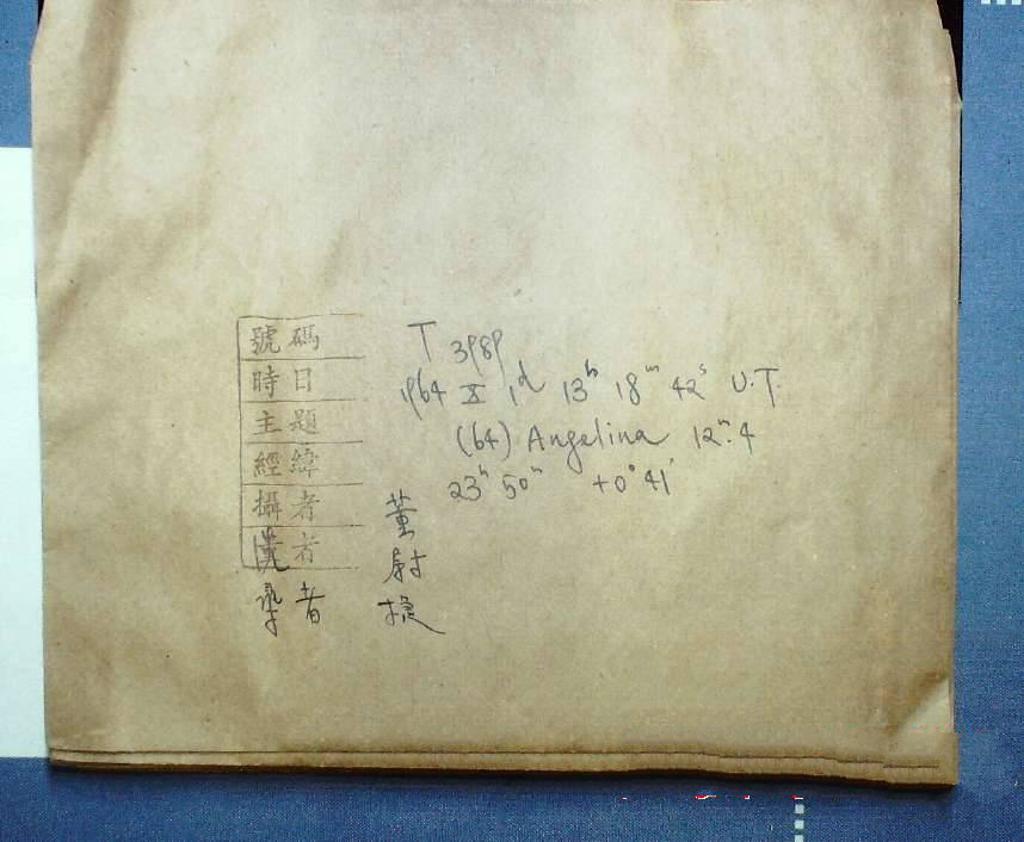 號碼 T 3989
時日 1964 X 1ᵈ 13ʰ 18ᵐ 42ˢ U.T.
主題 (64) Angelina 12ᵐ.4
經緯 23ʰ 50ᵐ +0°41′
攝者
者
者